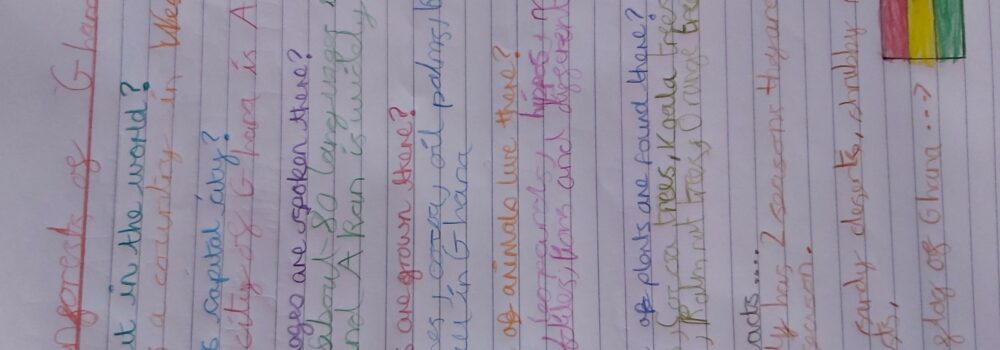 of Ghana
it in the world?
a country in
s capital city?
city of Ghana is A
ages are spoken there?
about 80 languages
and Akan is widly
are grown there?
es, cocoa, oil palms,
in Ghana
of animals live there?
leopards, hippos,
lions and different
of plants are found there?
trees, Koala trees
, palm nut trees, Orange tree
acts.....
y has 2 seasons they are
season.
sandy deserts, shrubby
ts,
flag of Ghana ...